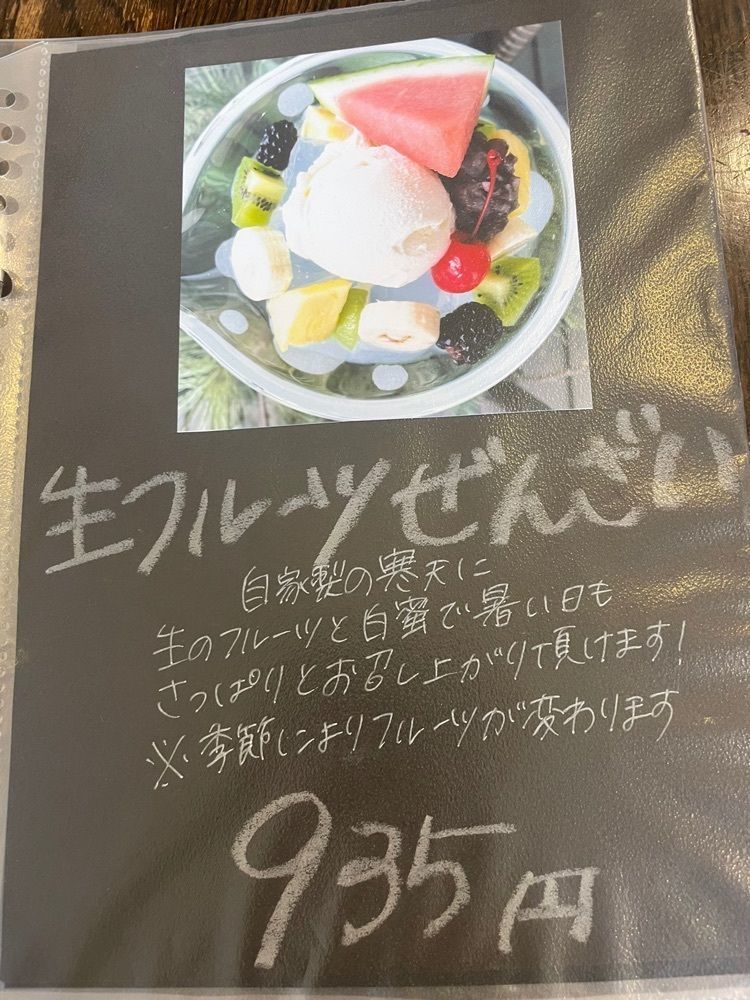 生フルーツぜんざい
自家製の寒天に
生のフルーツと白蜜で暑い日も
さっぱりとお召し上がり頂けます!
※季節によりフルーツが変わります
935円